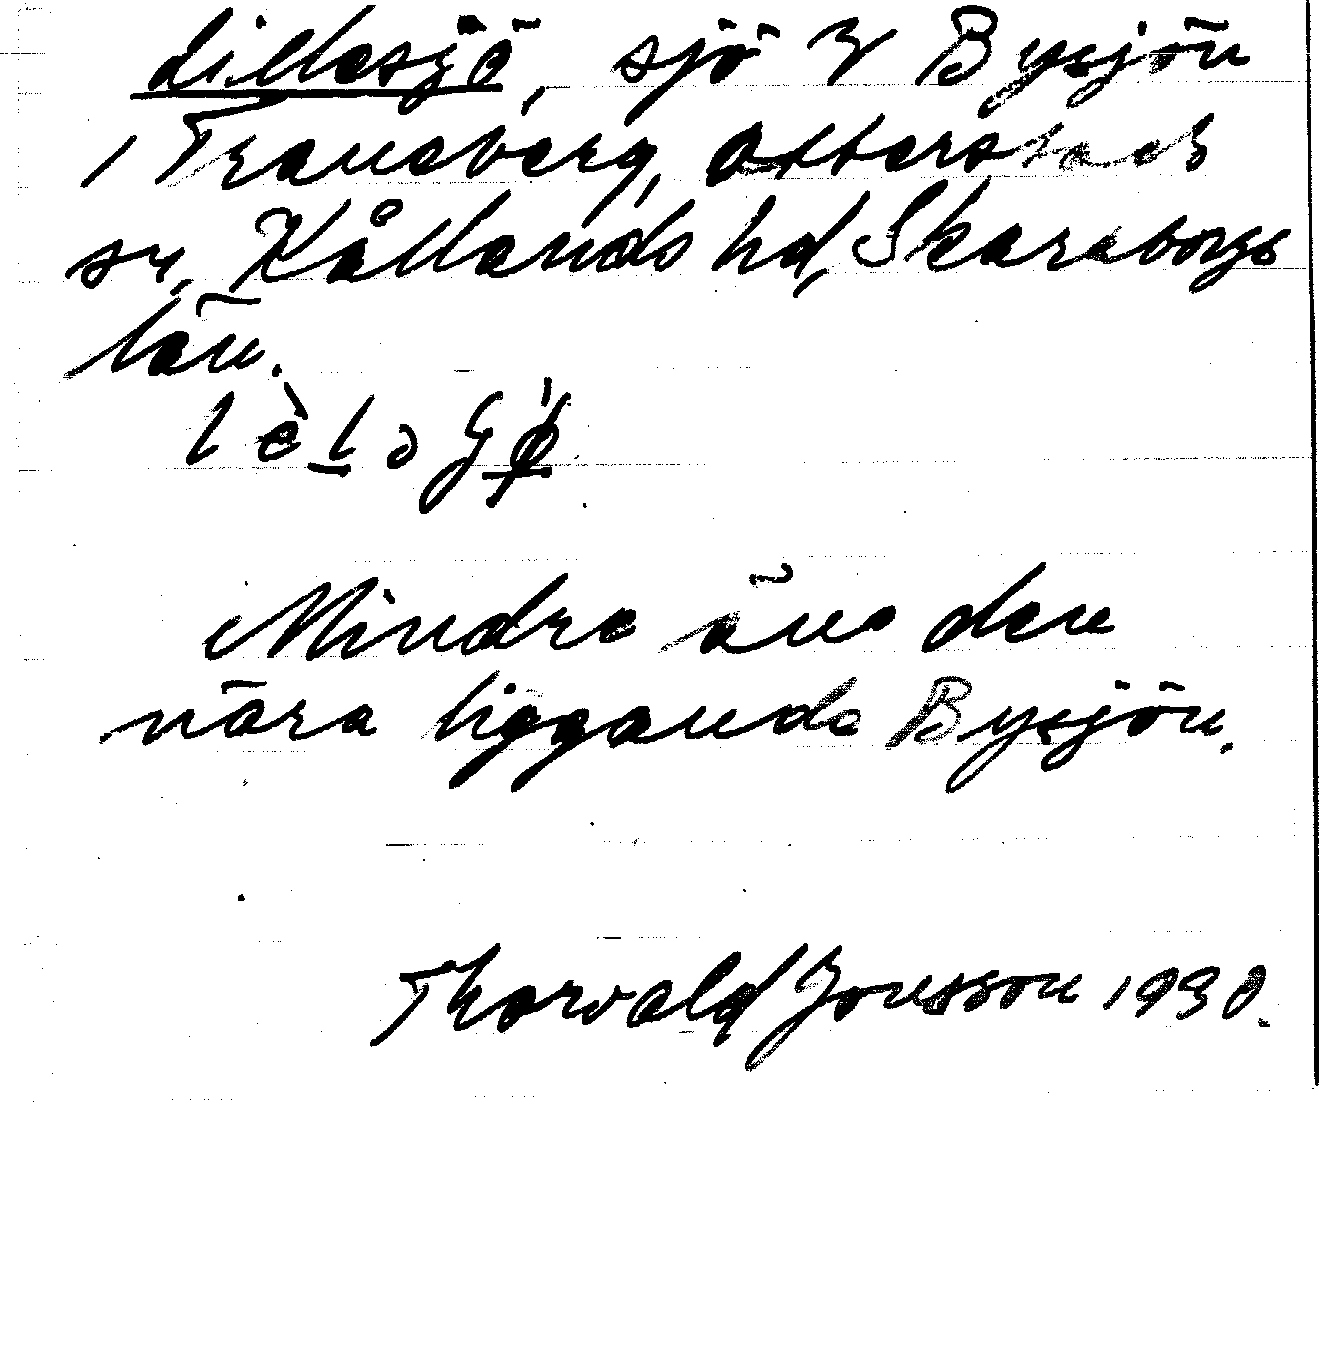 Lillesjö, sjö V Bysjön
i Traneberg, Otterstads
sn, Kållands hd, Skaraborgs
län.
Mindre än den
nära liggande Bysjön.
Thorvald Jonsson 1930.